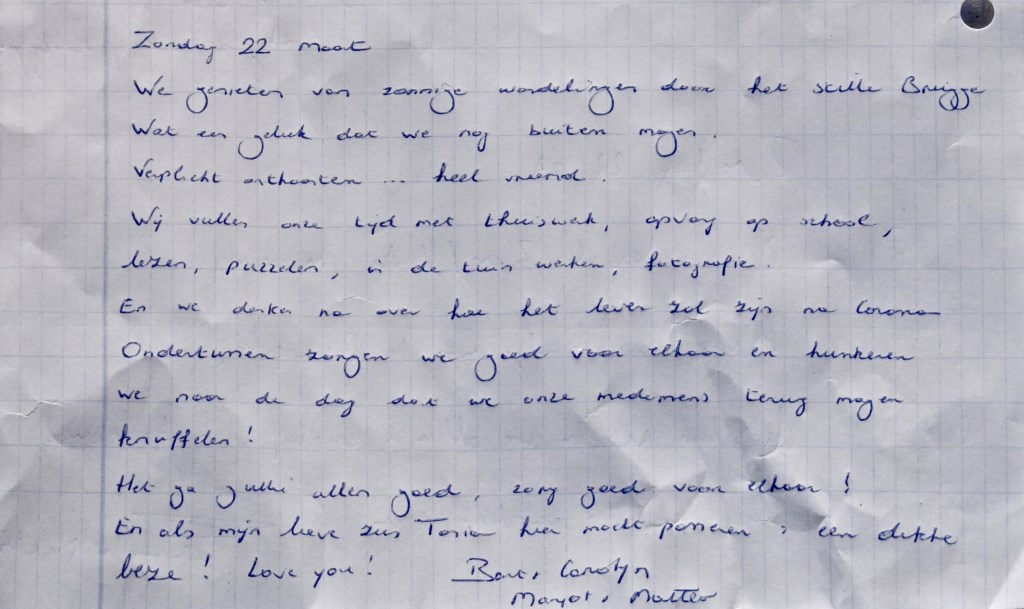 Zondag 22 maart
We genieten van zonnige wandelingen door het stille Brugge
Wat een geluk dat we nog buiten mogen.
Verplicht onthaasten ... heel vreemd.
Wij vullen onze tijd met thuiswerk, opvang op school,
lezen, puzzelen, in de tuin werken, fotografie.
En we denken na over hoe het leven zal zijn na Corona
Ondertussen zorgen we goed voor elkaar en hunkeren
we naar de dag dat we onze medemens terug mogen
knuffelen!
Het ga jullie allen goed, zorg goed voor elkaar!
En als mijn lieve zus hier mocht passeren : een dikke
beze! Love you! Bart, Carolyn
Margot, Matteo